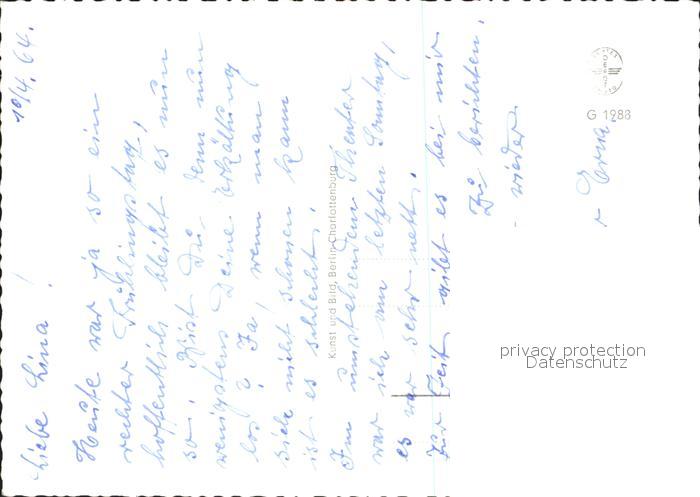 10/4. 64.
Liebe Lina!
Heute war ja so ein
rechter Frühlingstag,
hoffentlich bleibt es nun
so. Bist Du denn nun
wenigstens Deine Erkältung
los? Ja, wenn man
sich nicht schonen kann
ist es schlecht.
Im umstehenden Theater
war ich am letzten Sonntag,
es war sehr nett.
Zur Zeit gibt es bei mir
zu berichten.
wieder
Erna.
Kunst und Bild, Berlin-Charlottenburg
G 1988
privacy protection
Datenschutz